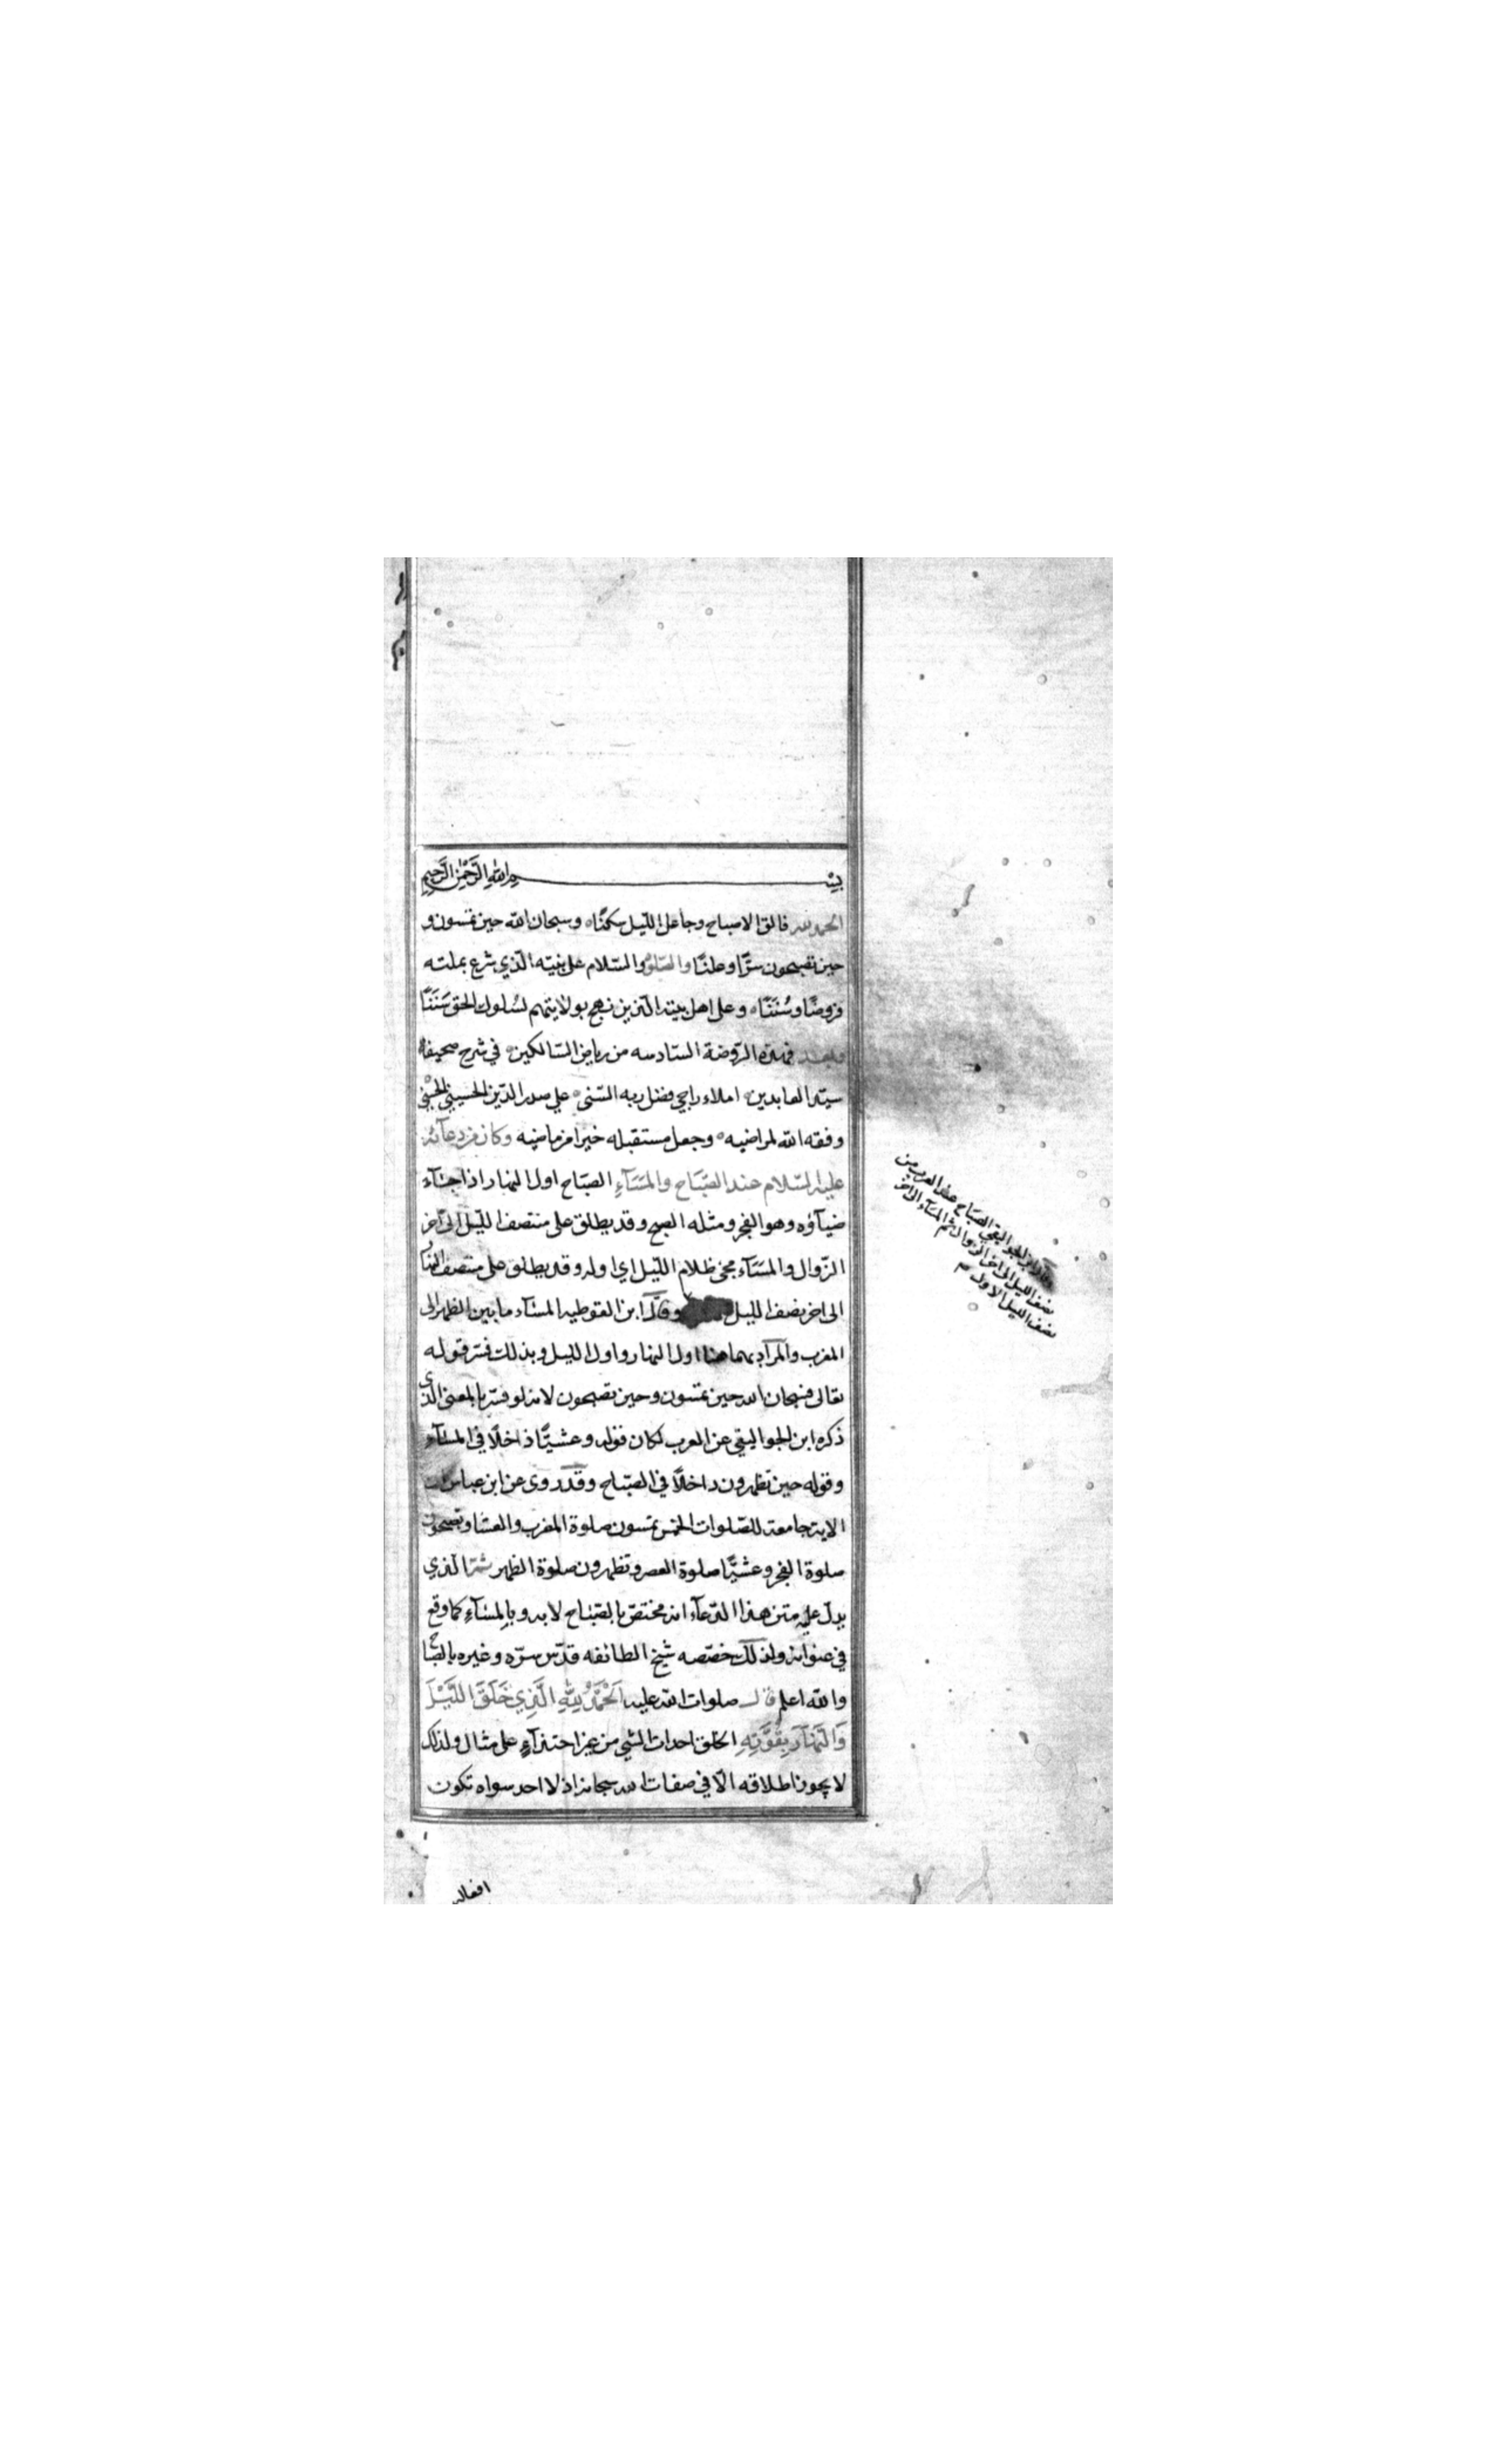 بسم الله الرحمن الرحيم
الحمد لله فالق الاصباح وجاعل الليل سكنًا وسبحان الله حين تمسون و
حين تصبحون سرًّا وعلنًا والصلوة والسّلام على نبيّه الّذي شرع بملته
فروضًا وسُنَنًا وعلى اهل بيته الّذين نهج بولايتهم لسُلوك الحق سَنَنًا
وبعد فهذه الرّوضة السّادسه من رياض السّالكين في شرح صحيفة
سيّد العابدين املاء راجي فضل ربه السّنى علي صدر الدّين الحسيني الحسني
وفقه الله لمراضيه وجعل مستقبله خيرا من ماضيه وكان من دعآئه
عليه السّلام عند الصّبَاح والمَسَآءِ الصبَاح اول النهار اذا جآء
ضيآؤه وهو الفجر ومثله الصبح وقد يطلق على منتصف اللّيل الى آخر
الزّوال والمسَآء مجئ ظلام اللّيل اي اوله وقد يطلق على منتصف النهار
الى اخر نصف الليل وقال ابن القوطيه المسآء ما بين الظهر الى
المغرب والمرآد بهما هنا اول النهار واول الليل وبذلك فسّر قوله
تعالى فسبحان الله حين تمسون وحين تصبحون لانه لو فسّر بالمعنى الذي
ذكره ابن الجواليقي عن العرب لكان قوله وعشيًّا داخلًا في المسآء
وقوله حين تظهرون داخلًا في الصبّاح وقد روى عن ابن عباس ان
الاية جامعة للصّلوات الخمس تمسون صلوة المغرب والعشا وتصبحون
صلوة الفجر وعشيًّا صلوة العصر وتظهرون صلوة الظهر ثمّ الّذي
يدلّ عليه متن هذا الدّعآء انه مختصّ بالصّبَاح لا به وبالمسَآءِ كما وقع
في عنوانه ولذلك خصّصه شيخ الطائفه قدّس سرّه وغيره بالصّبا
والله اعلم قال صلوات الله عليه اَلْحَمْدُ لِلّٰهِ الَّذِي خَلَقَ اللَّيْلَ
وَالنَّهَارَ بِقُوَّتِهِ الخلق احداث الشي من غير احتذآءٍ على مثال ولذلك
لا يجوز اطلاقه الّا في صفات الله سبحانه اذ لا احد سواه تكون
افعاله
وقال ابن الجواليقي الصبَاح عند العرب من
نصف الليل الى اخر الزوال ثم المسآء الى اخر
نصف الليل الاول